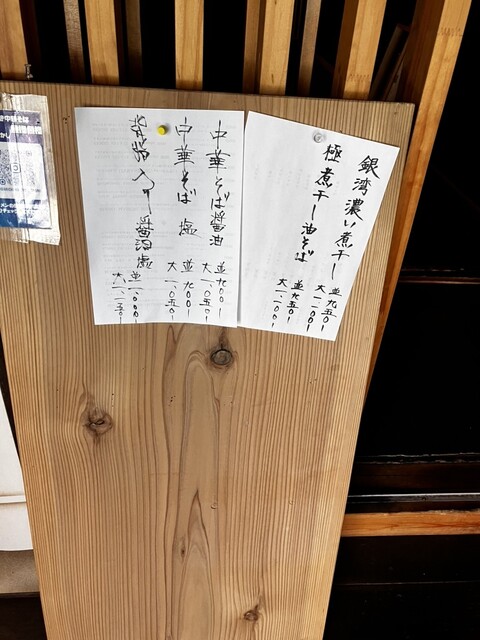 銀湾濃い煮干し
並九五〇ー
大一、一〇〇ー
極煮干し油そば
並九五〇ー
大一、一〇〇ー
中華そば醤油
並九〇〇ー
大一、〇五〇ー
中華そば 塩
並九〇〇ー
大一、〇五〇ー
入り 醤油塩
並一、〇〇〇ー
大一、一五〇ー